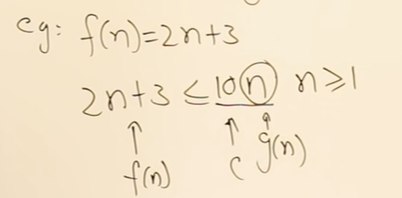 eg: f(n)=2n+3
2n+3 ≤ 10n n≥1
↑ ↑ ↑
f(n) c g(n)